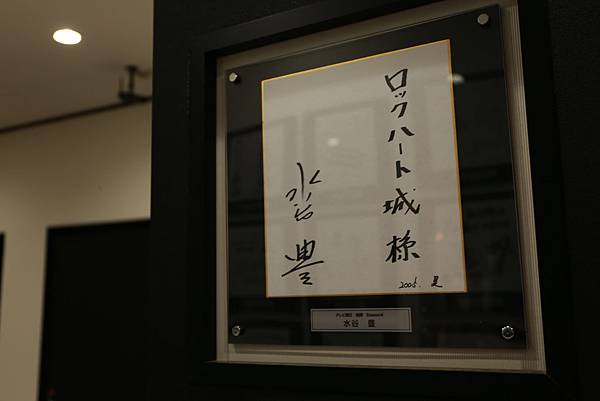 ロックハート城様
水谷豊
テレビ朝日 相棒 Season4
水谷 豊